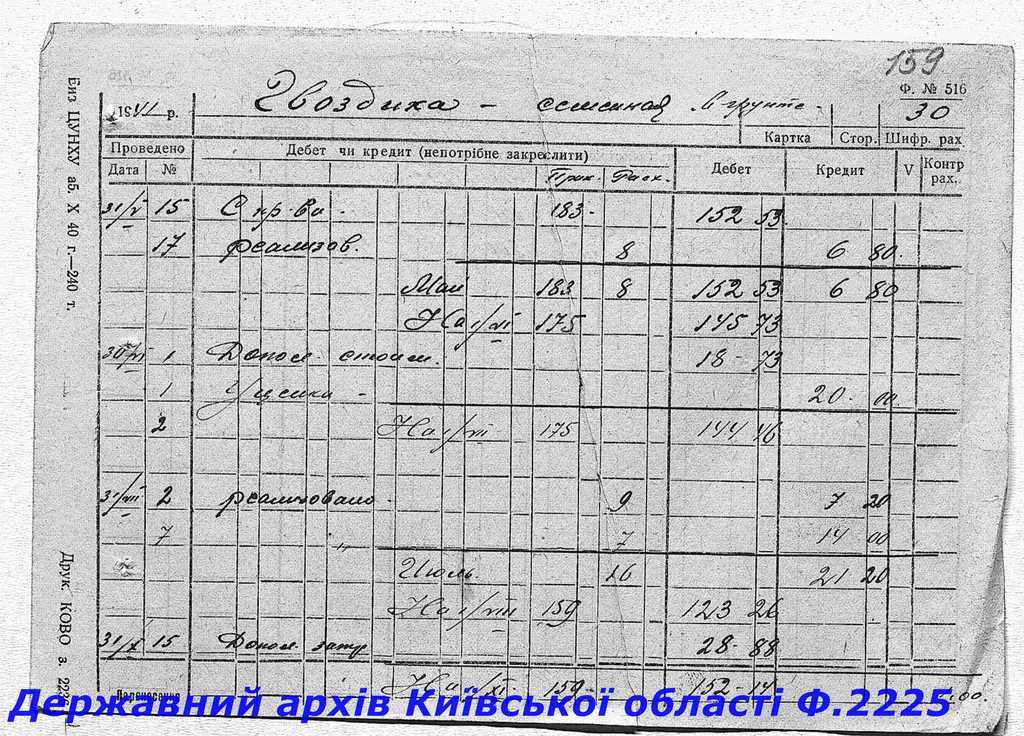 159
Ф. № 516
1941 р. Гвоздика - семенная в грунте - 30
Картка Стор. Шифр. рах
Проведено Дебет чи кредит (непотрібне закреслити) Дебет Кредит V Контр рах.
Дата № Прих. Расх.
31/V 15 С пр-ва - 183- 152 53
17 реализов. 8 6 80
Май 183 8 152 53 6 80
На 1/VI 175 145 73
30/VI 1 Допол. стоим. 18- 73
1 Уценки - 20- 00
2 175 144 46
31/VII 2 реализовано - 9 7 20
7 " 7 14 00
Июль. 16 21 20
На 1/VIII 159 123 26
31/X 15 Допол затр 28- 88
Перенесення На 1/XI 159- 152-14
Биз ЦУНКУ аб. X 40 г.—240 т.
Друк. КОВО З. 222
Державний архів Київської області Ф.2225